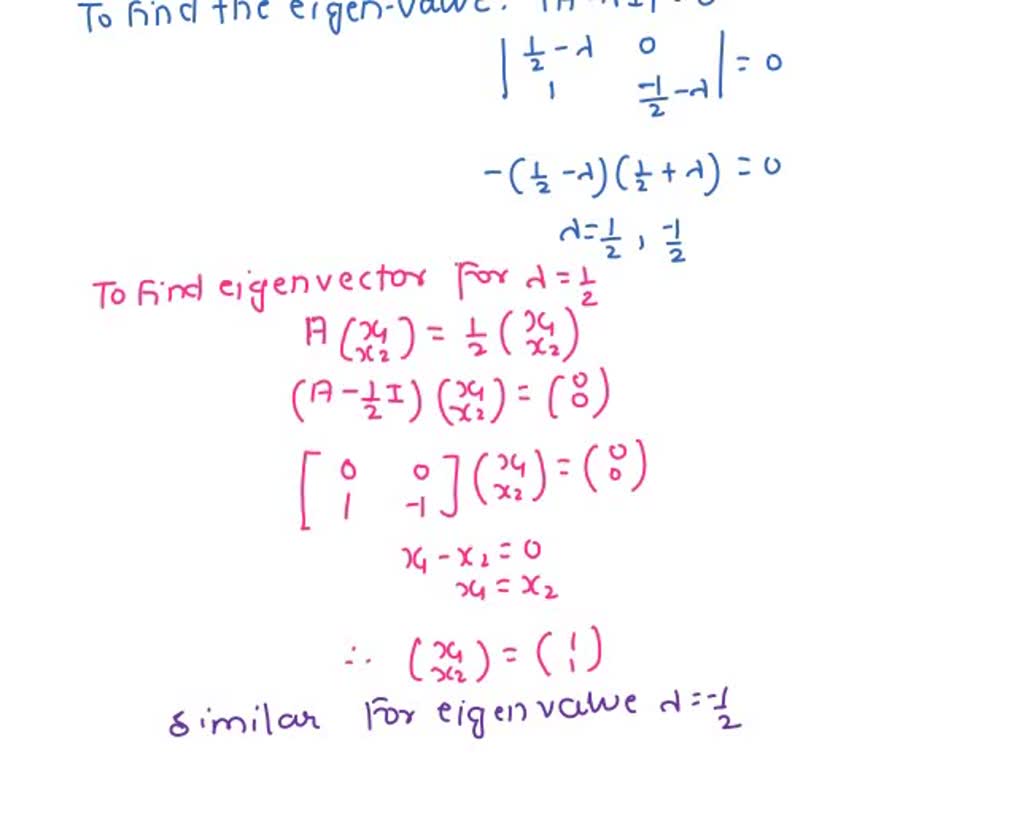 To find the eigen-value:
| 1/2 - λ 0 | = 0
| 1 -1/2 - λ |
-(1/2 - λ)(1/2 + λ) = 0
λ = 1/2, -1/2
To find eigenvector for λ = 1/2
A (x₁ x₂) = 1/2 (x₁ x₂)
(A - 1/2 I) (x₁ x₂) = (0 0)
[0 0
1 -1] (x₁ x₂) = (0 0)
x₁ - x₂ = 0
x₁ = x₂
∴ (x₁ x₂) = (1 1)
similar for eigenvalue λ = -1/2